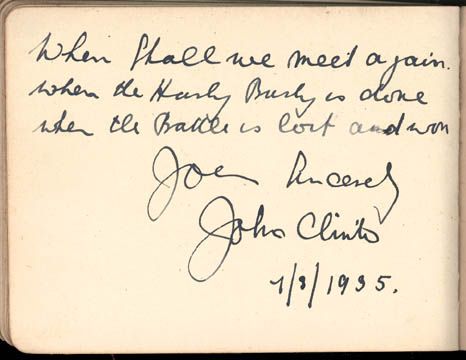 When Shall we meet again.
when the Hurly Burly is done
when the Battle is lost and won
Sincerely
John
7/3/1935.